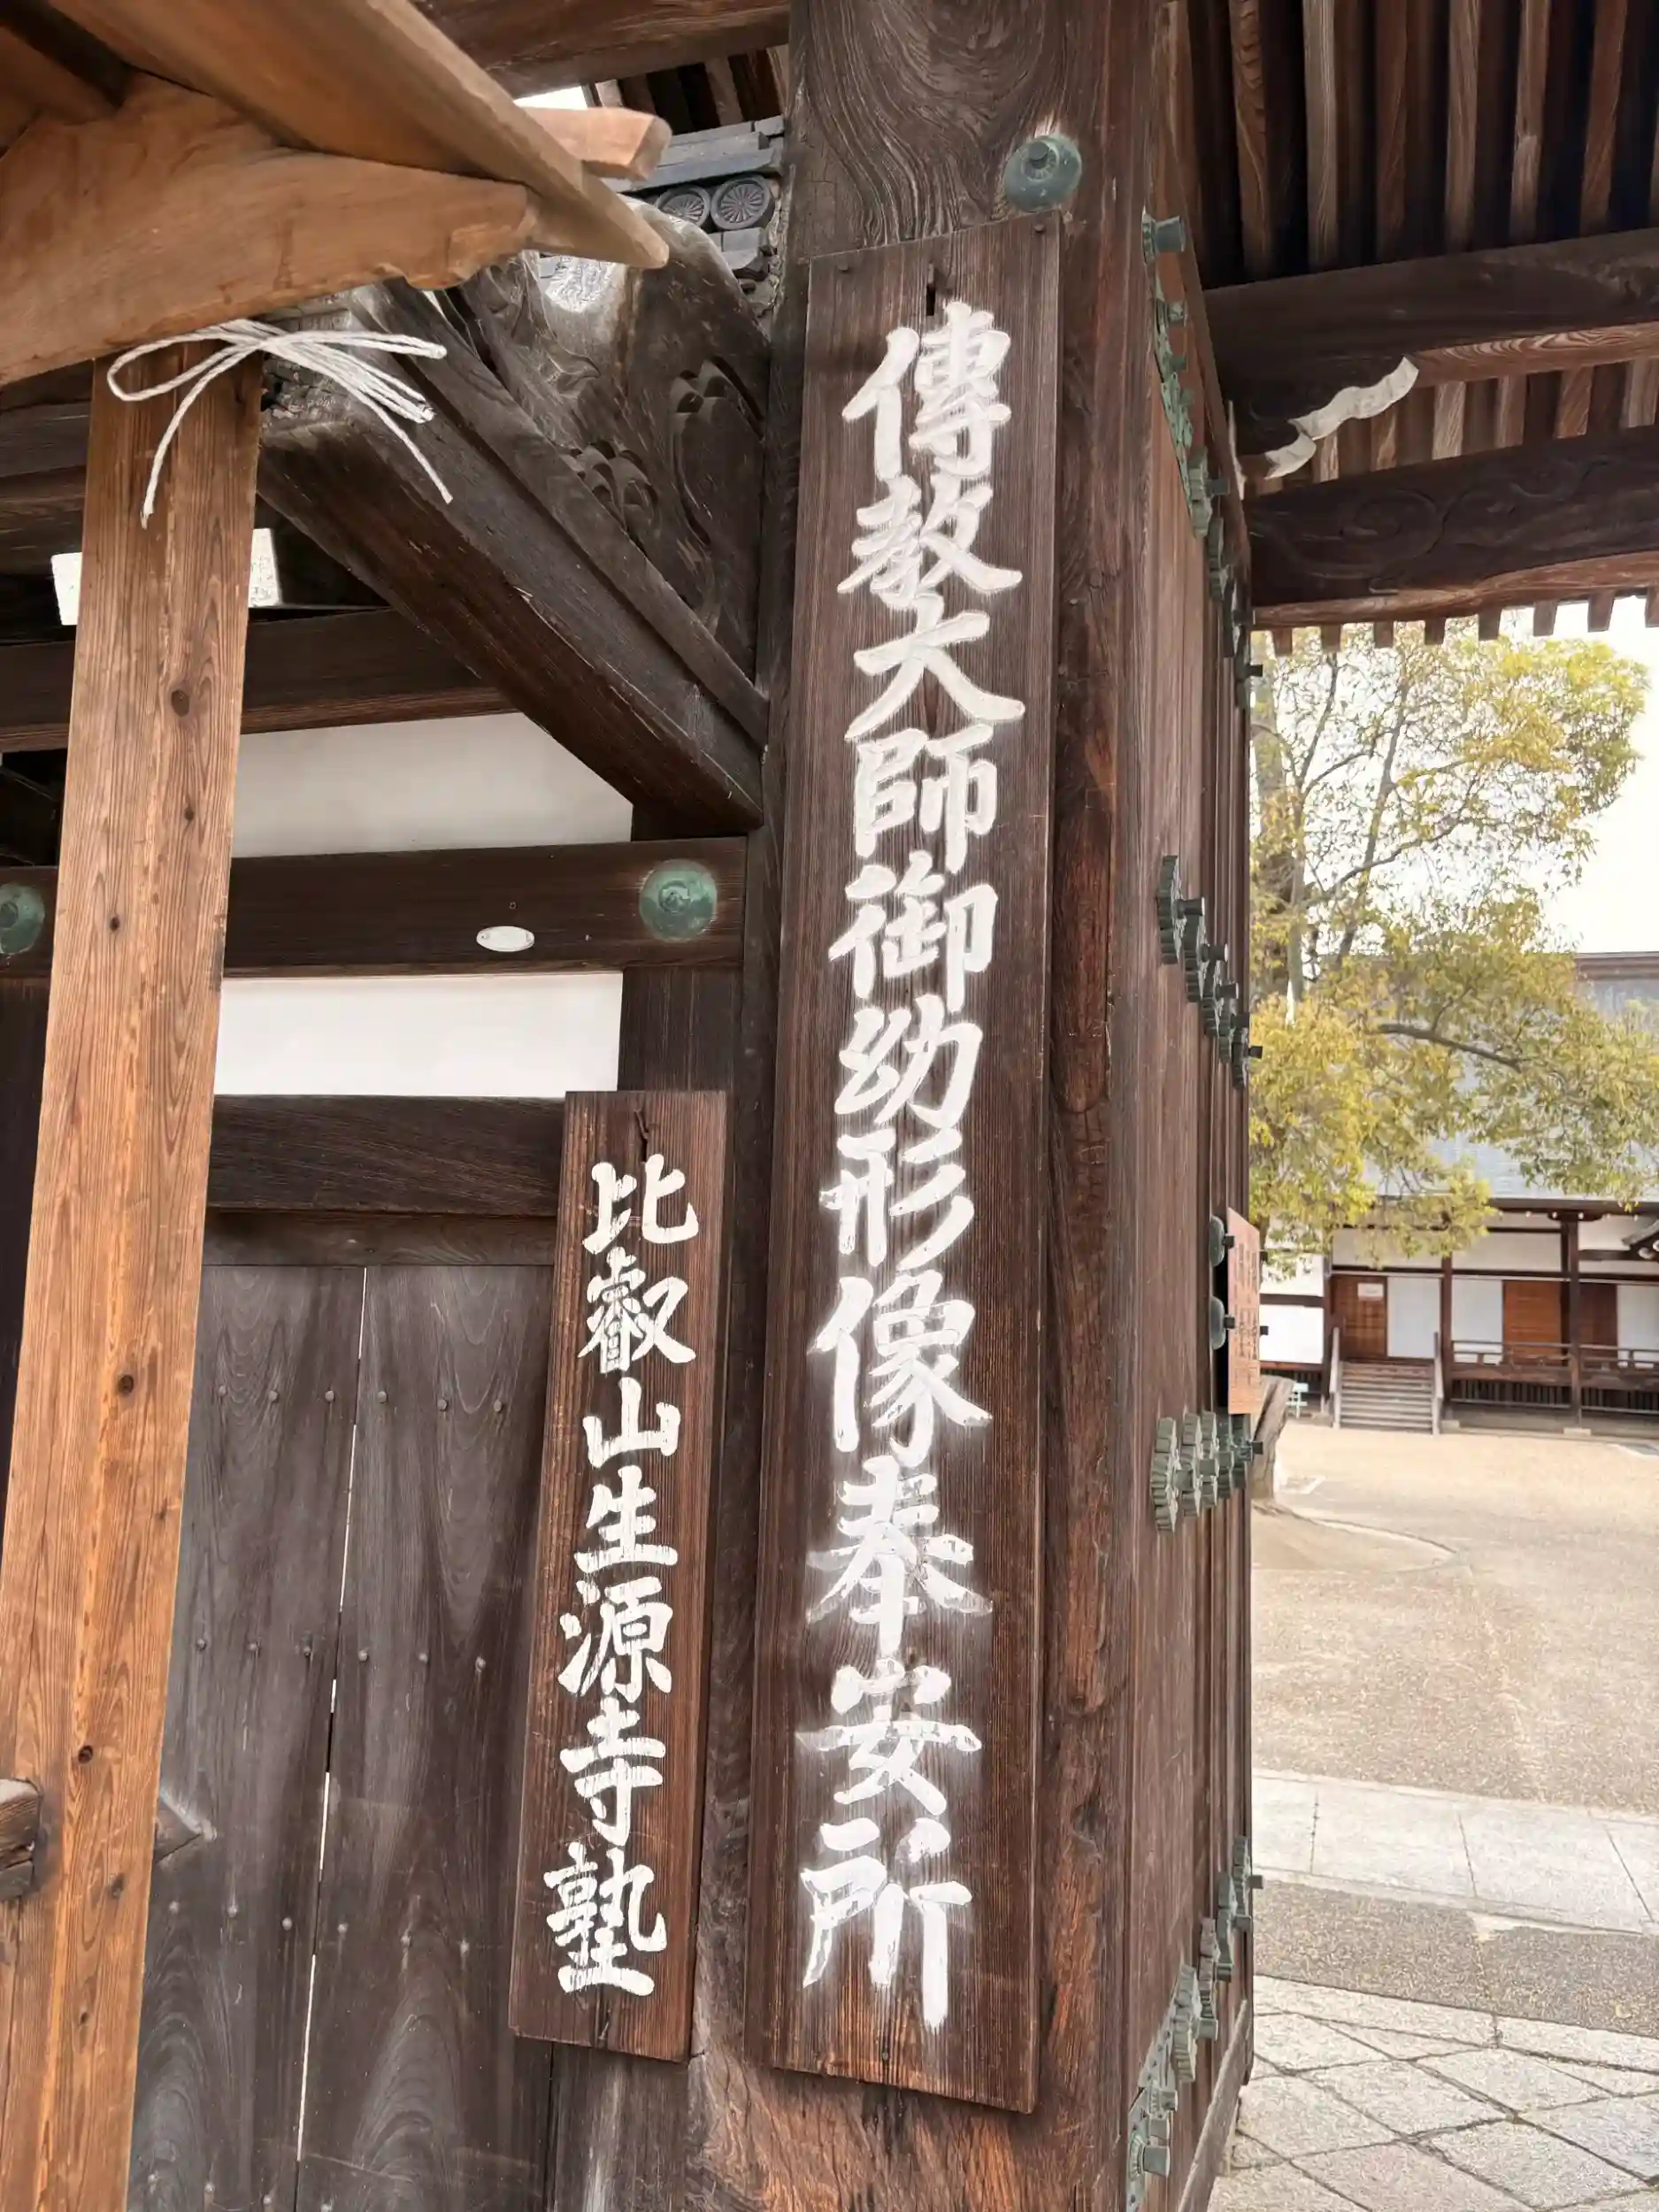 傳教大師御幼形像奉安所
比叡山生源寺塾